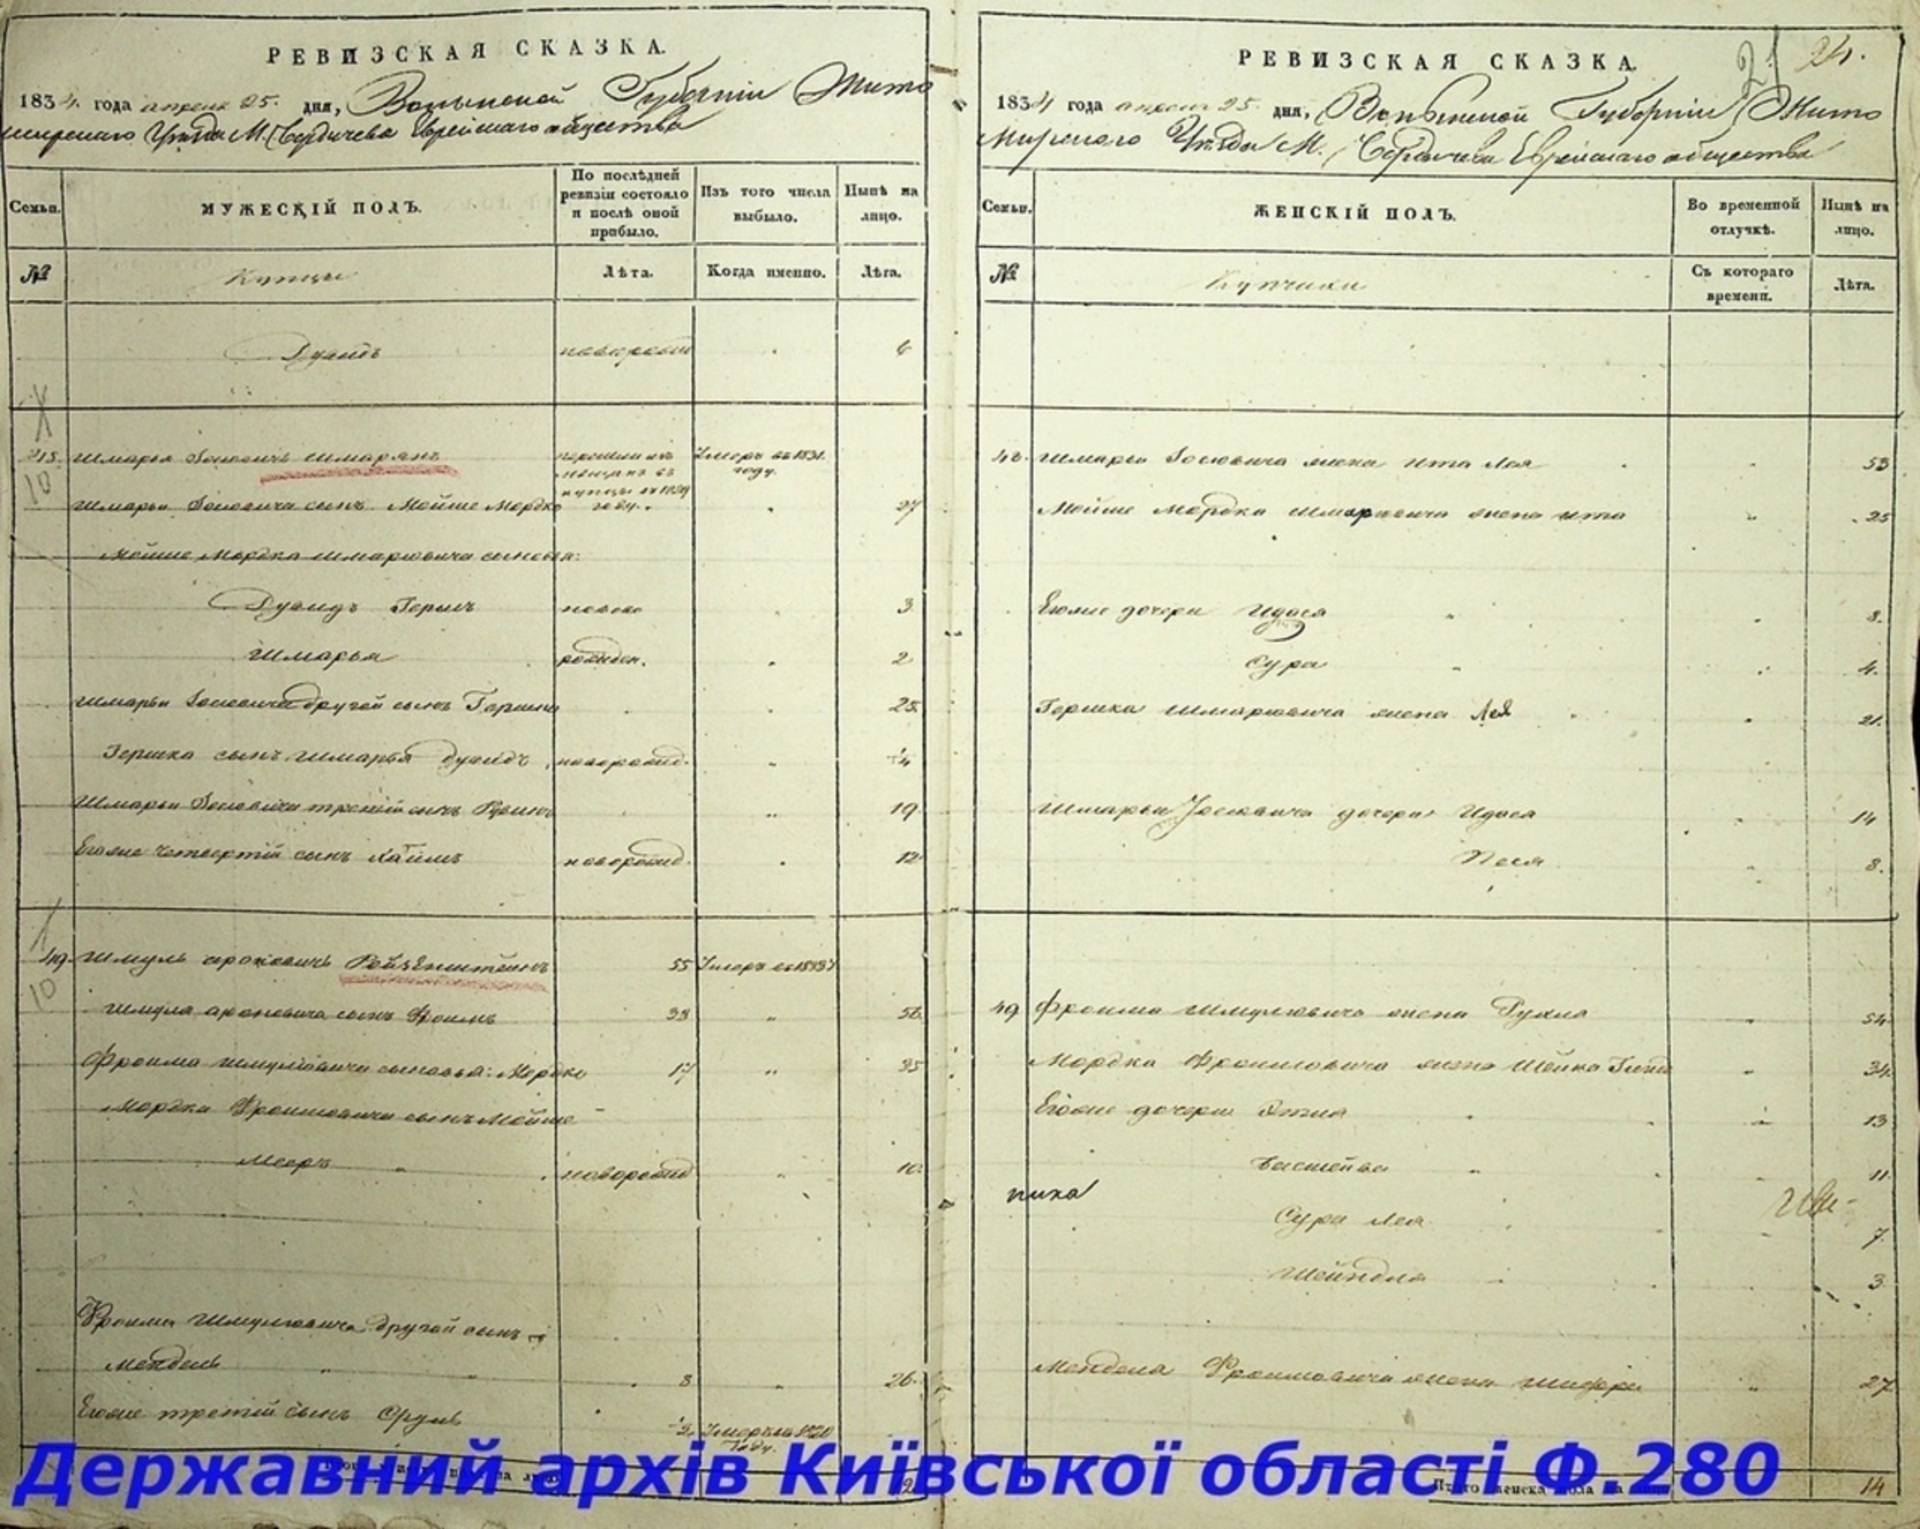 РЕВИЗСКАЯ СКАЗКА.
1834 года апреля 25. дня, Волынской Губерніи Жито
мирскаго Уѣзда М. Бердичева Еврейскаго общества
Семьи.
МУЖЕСКІЙ ПОЛЪ.
По послѣдней ревизіи состояло и послѣ оной прибыло.
Изъ того числа выбыло.
Нынѣ на лицо.
№
Купцы
Лѣта.
Когда именно.
Лѣта.
Дувидъ новорожд
48. Шмарья Іосіовичъ Шмарянъ перошли изъ мещанъ въ купцы въ году. Умеръ въ 1831. году.
10
Шмарьи Іосіовича сынъ Мойше Мордко 27
Мойше Мордка Шмаріовича сыновья:
Дувидъ Гершъ ново 3
Шмарья рожден. 2
Шмарьи Іосіовича другой сынъ Гершко 25
Гершка сынъ Шмарья Дувидъ новорожд.
Шмарьи Іосіовича третій сынъ Рувинъ 19.
Егоже четвертій сынъ Хаимъ новорожд. 12
49. Шмуль Ароновичъ 55 Умеръ въ
10
Шмуля Ароновича сынъ Фроимъ 38 56
Фроима Шмуліовича сыновья: Мордко 17 35
Мордка Фроимовича сынъ Мойше
Мееръ новорожд 10.
Фроима Шмуліовича другой сынъ
Мендель 8 26.
Егоже третій сынъ Сруль Умеръ въ 1820 году.
РЕВИЗСКАЯ СКАЗКА.
21 24.
1834 года апреля 25. дня, Волынской Губерніи Жито
мирскаго Уѣзда М. Бердичева Еврейскаго общества
Семьи.
ЖЕНСКІЙ ПОЛЪ.
Во временной отлучкѣ.
Нынѣ на лицо.
№
Купчихи
Съ котораго времени.
Лѣта.
48. Шмарьи Іосіовича жена Ита Лея 53
Мойше Мордка Шмаріовича жена Ита 25
Егоже дочери Идася 8.
Сура 4.
Гершка Шмаріовича жена Лея 21.
Шмарьи Іосіовича дочери Идася 14
Песя 8.
49 Фроима Шмуліовича жена Рухля 54
Мордка Фроимовича жена Шейна 34
Егоже дочери 13
Басшейва 11
Сура Лея 7
Шейндля 3
Менделя Фроимовича жена Шифра 27
14
Державний архів Київської області Ф.280